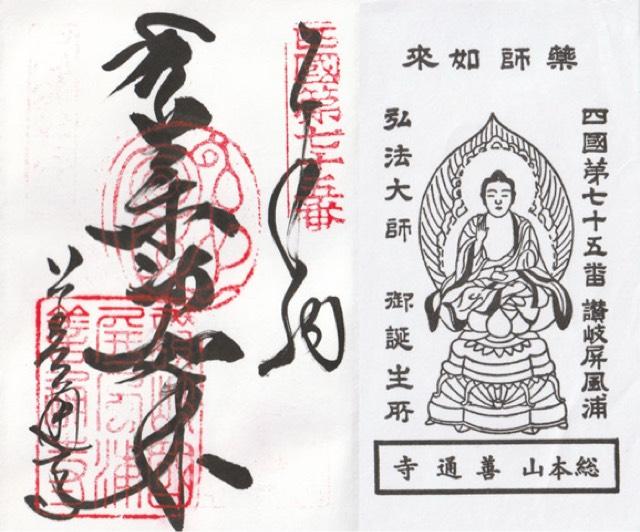 奉納
四國第七十五番
薬師如来
善通寺
藥師如來
四國第七十五番 讃岐屏風浦
弘法大師 御誕生所
総本山 善通寺